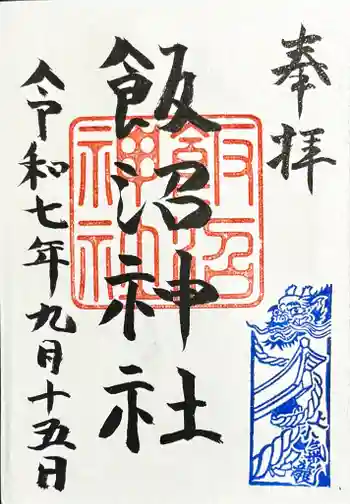 奉拝
飯沼神社
飯沼
神社
令和七年九月十五日